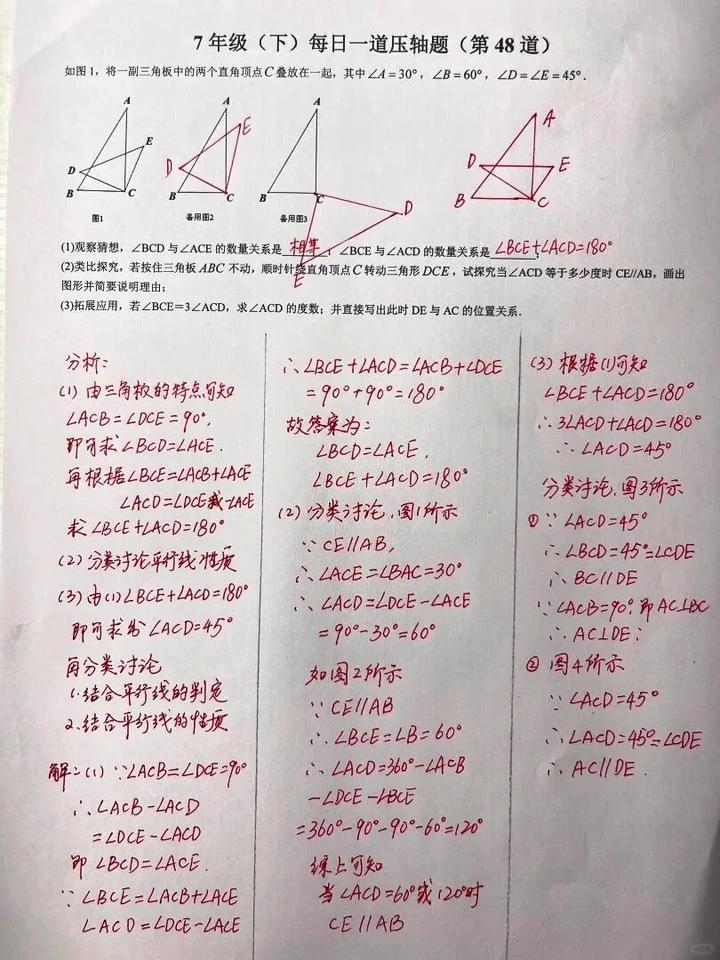 7 年级（下）每日一道压轴题（第 48 道）
如图 1，将一副三角板中的两个直角顶点 C 叠放在一起，其中∠A = 30°，∠B = 60°，∠D = ∠E = 45°．
A
E
D
B
C
图1
A
E
D
B
C
备用图2
A
B
C
D
E
备用图3
A
D
E
B
C
(1)观察猜想，∠BCD 与∠ACE 的数量关系是 相等；∠BCE 与∠ACD 的数量关系是 ∠BCE+∠ACD=180°
(2)类比探究，若按住三角板 ABC 不动，顺时针绕直角顶点 C 转动三角形 DCE，试探究当∠ACD 等于多少度时 CE//AB，画出
图形并简要说明理由；
(3)拓展应用，若∠BCE＝3∠ACD，求∠ACD 的度数；并直接写出此时 DE 与 AC 的位置关系．
分析：
(1) 由三角板的特点可知
∠ACB=∠DCE=90°，
即可求∠BCD=∠ACE．
再根据∠BCE=∠ACB+∠ACE
∠ACD=∠DCE-∠ACE
求∠BCE+∠ACD=180°
(2) 分类讨论平行线性质
(3) 由(1)∠BCE+∠ACD=180°
即可求出∠ACD=45°
再分类讨论
1.结合平行线的判定
2.结合平行线的性质
解：(1) ∵∠ACB=∠DCE=90°
∴∠ACB-∠ACD
=∠DCE-∠ACD
即∠BCD=∠ACE．
∵∠BCE=∠ACB+∠ACE
∠ACD=∠DCE-∠ACE
∴∠BCE+∠ACD=∠ACB+∠DCE
=90°+90°=180°
故答案为：
∠BCD=∠ACE，
∠BCE+∠ACD=180°
(2) 分类讨论，图1所示
∵CE//AB，
∴∠ACE=∠BAC=30°
∴∠ACD=∠DCE-∠ACE
=90°-30°=60°
如图2所示
∵CE//AB
∴∠BCE=∠B=60°
∴∠ACD=360°-∠ACB
-∠DCE-∠BCE
=360°-90°-90°-60°=120°
综上可知
当∠ACD=60°或120°时
CE//AB
(3) 根据(1)可知
∠BCE+∠ACD=180°
∴3∠ACD+∠ACD=180°
∴∠ACD=45°
分类讨论，图3所示
① ∵∠ACD=45°
∴∠BCD=45°=∠CDE
∴BC//DE
∵∠ACB=90°即AC⊥BC
∴AC⊥DE；
② 图4所示
∵∠ACD=45°
∴∠ACD=45°=∠CDE
∴AC//DE．